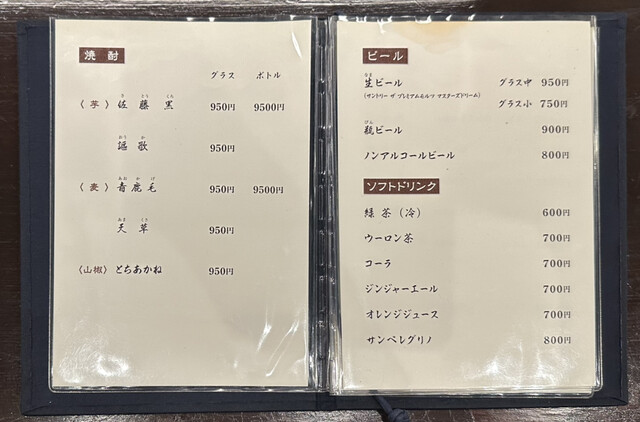 焼酎
グラス ボトル
〈芋〉 佐藤黒 950円 9500円
謳歌 950円
〈麦〉 青鹿毛 950円 9500円
天草 950円
〈山椒〉 とちあかね 950円
ビール
生ビール グラス中 950円
(サントリー ザ プレミアムモルツ マスターズドリーム)
グラス小 750円
瓶ビール 900円
ノンアルコールビール 800円
ソフトドリンク
緑茶(冷) 600円
ウーロン茶 700円
コーラ 700円
ジンジャーエール 700円
オレンジジュース 700円
サンペレグリノ 800円